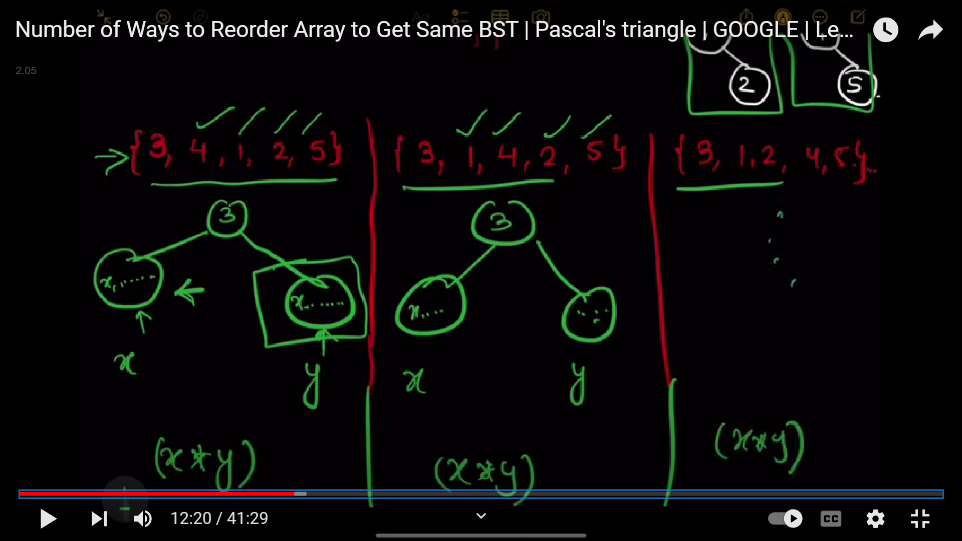 Number of Ways to Reorder Array to Get Same BST | Pascal's triangle | GOOGLE | Le...
2.05
2
5
{3, 4, 1, 2, 5}
{3, 1, 4, 2, 5}
{3, 1, 2, 4, 5}...
3
3
x,......
x......
x,...
x
y
x
y
(x*y)
(x*y)
(x*y)
12:20 / 41:29
CC